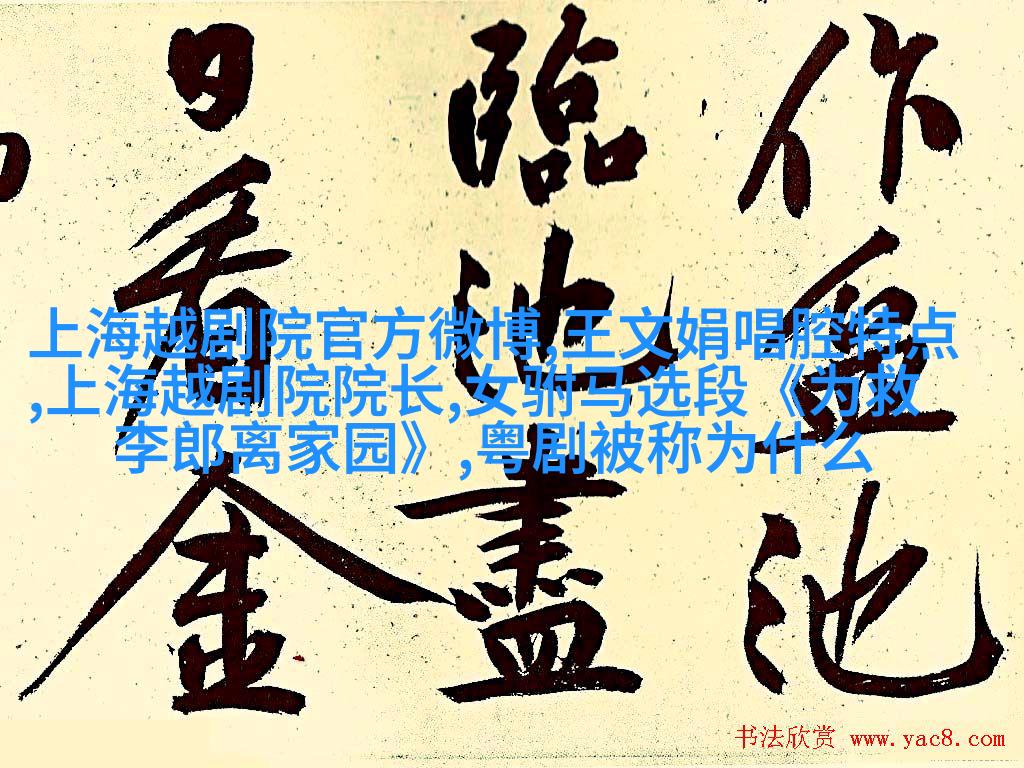 作血池
臨池盡
日書金
上海越剧院官方微博,王文娟唱腔特点
,上海越剧院院长,女驸马选段《为救
李郎离家园》,粤剧被称为什么
书法欣赏 www.yac8.com